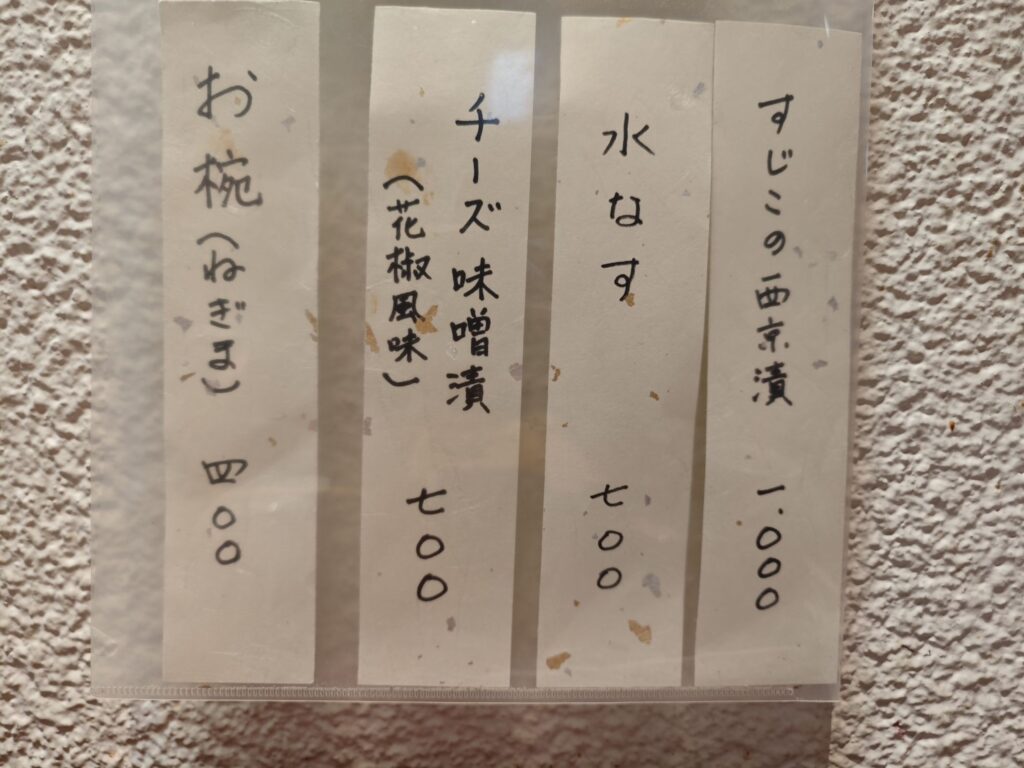 すじこの西京漬 一.〇〇〇
水なす 七〇〇
チーズ味噌漬
(花椒風味)
七〇〇
お椀(ねぎま) 四〇〇